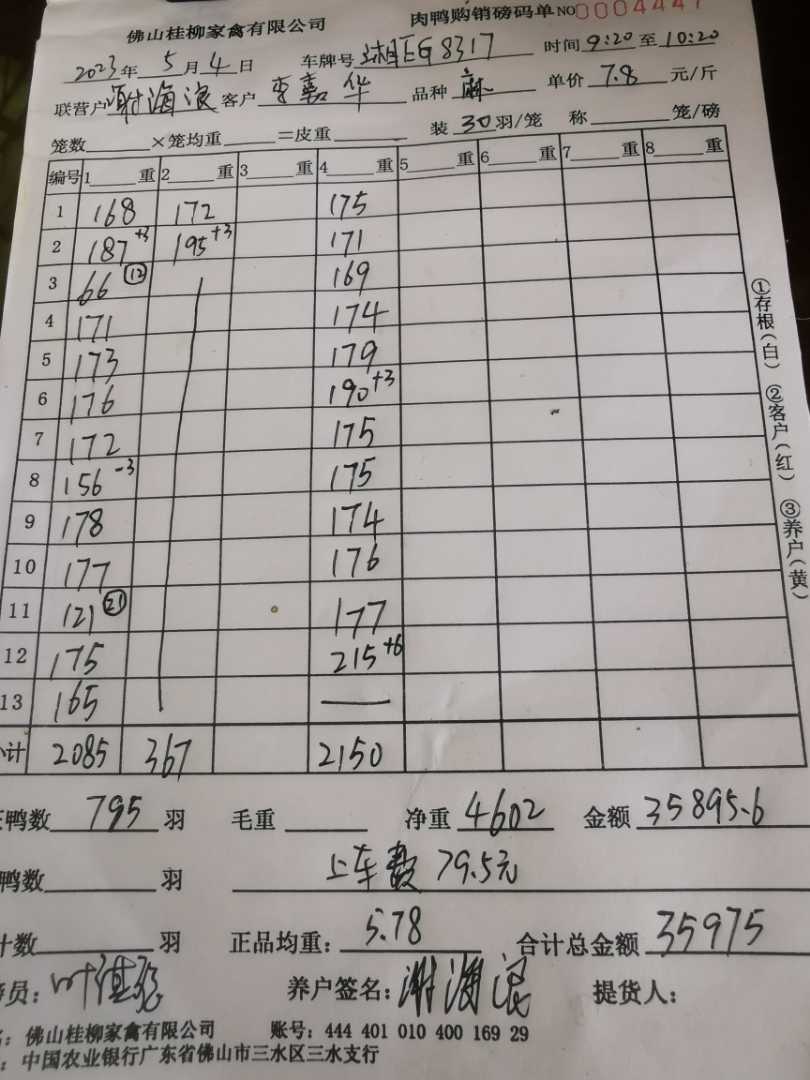 佛山桂柳家禽有限公司 肉鸭购销磅码单 NO 0004447
2023年 5月4日 车牌号 EG8317 时间 9:20 至 10:20
联营户 谢海浪 客户 李嘉华 品种 麻 单价 7.8 元/斤
笼数 ×笼均重 =皮重 装 30 羽/笼 称 笼/磅
编号 1 重 2 重 3 重 4 重 5 重 6 重 7 重 8 重
1 168 172 175
2 187+3 195+3 171
3 66⑫ 169
4 171 174
5 173 179
6 176 190+3
7 172 175
8 156-3 175
9 178 174
10 177 176
11 121㉑ 177
12 175 215+6
13 165 —
计 2085 367 2150
①存根(白) ②客户(红) ③养户(黄)
鸭数 795 羽 毛重 净重 4602 金额 35895.6
鸭数 羽 上车数 79.5元
计数 羽 正品均重: 5.78 合计总金额 35975
员: 养户签名: 谢海浪 提货人:
佛山桂柳家禽有限公司 账号: 444 401 010 400 169 29
中国农业银行广东省佛山市三水区三水支行